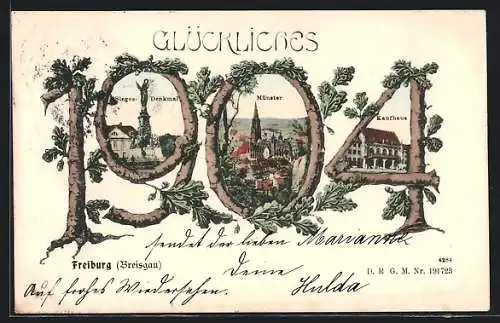 GLÜCKLICHES
1904
Sieges- Denkmal
Münster
Kaufhaus
sendet der lieben Marianne
Freiburg (Breisgau)
Deine
4284
D. R. G. M. Nr. 191723
Auf frohes Wiedersehen. Hulda